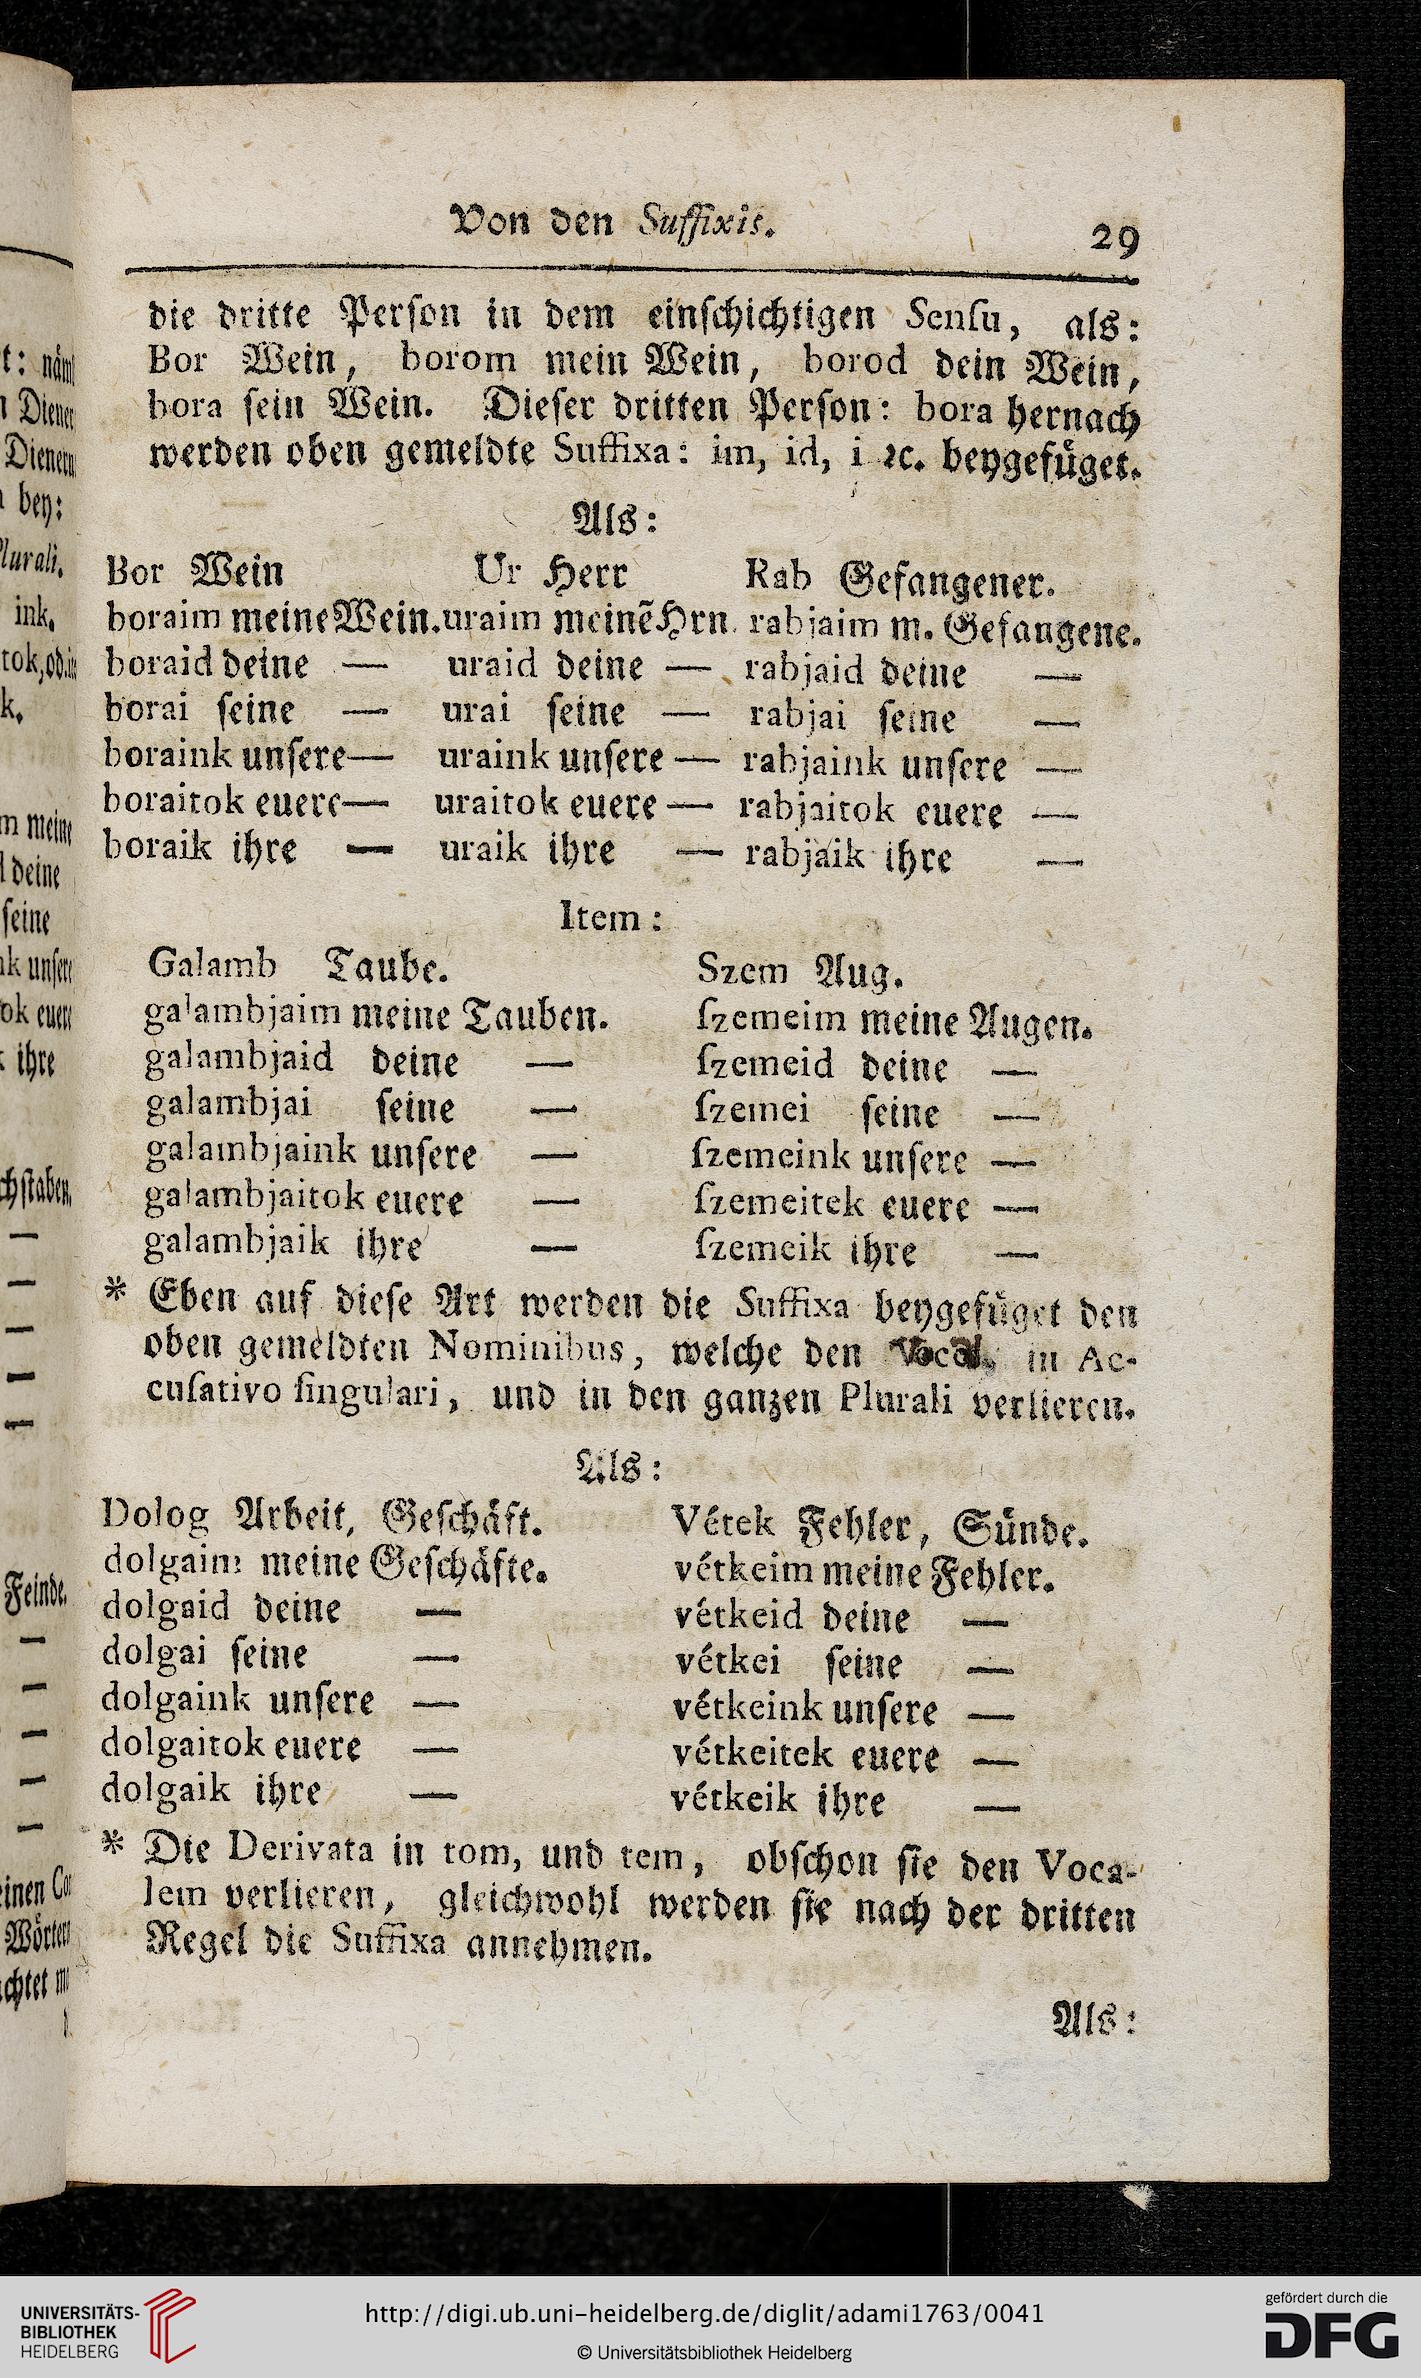 Von den Suffixis.
29
die dritte Perſon in dem einſchichtigen Senſu, als:
Bor Wein, borom mein Wein, borod dein Wein,
bora ſein Wein. Dieſer dritten Perſon: bora hernach
werden oben gemeldte Suffixa: im, id, i ꝛc. beygefüget.
Als:
Bor Wein Ur Herr Rab Gefangener.
boraim meine Wein. uraim meinẽ Hrn. rabjaim m. Gefangene.
boraid deine — uraid deine — rabjaid deine —
borai ſeine — urai ſeine — rabjai ſeine —
boraink unſere — uraink unſere — rabjaink unſere —
boraitok euere — uraitok euere — rabjaitok euere —
boraik ihre — uraik ihre — rabjaik ihre —
Item:
Galamb Taube. Szem Aug.
galambjaim meine Tauben. ſzemeim meine Augen.
galambjaid deine — ſzemeid deine —
galambjai ſeine — ſzemei ſeine —
galambjaink unſere — ſzemeink unſere —
galambjaitok euere — ſzemeitek euere —
galambjaik ihre — ſzemeik ihre —
* Eben auf dieſe Art werden die Suffixa beygefüget den
oben gemeldten Nominibus, welche den Vocal. in Ac-
cuſativo ſingulari, und in den ganzen Plurali verlieren.
Als:
Dolog Arbeit, Geſchäft. Vétek Fehler, Sünde.
dolgaim meine Geſchäfte. vétkeim meine Fehler.
dolgaid deine — vétkeid deine —
dolgai ſeine — vétkei ſeine —
dolgaink unſere — vétkeink unſere —
dolgaitok euere — vétkeitek euere —
dolgaik ihre — vétkeik ihre —
* Die Derivata in tom, und tem, obſchon ſie den Voca-
lem verlieren, gleichwohl werden ſie nach der dritten
Regel die Suffixa annehmen.
Als:
t: näml
Diener
Dienern
bey:
ink.
k.
deine
ſeine
ihre
chſtaben.
Feinde.
einen
UNIVERSITÄTS-
BIBLIOTHEK
HEIDELBERG
http://digi.ub.uni-heidelberg.de/diglit/adami1763/0041
© Universitätsbibliothek Heidelberg
gefördert durch die
DFG